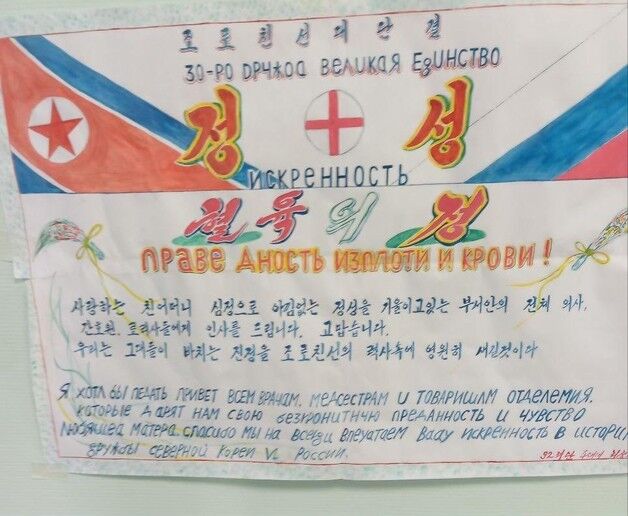 조로친선의 단결
30-РО DРЧЖОА ВЕЛИКАЯ ЕдИНСТВО
정 성
ИСКРЕННОСТЬ
혈육의 정
ПРАВЕ ДНОСТЬ ИЗПЛОТИ И КРОВИ!
사랑하는 친어머니 심정으로 아낌없는 정성을 기울이고있는 부서안의 전체 의사,
간호원, 로력사들에게 인사를 드립니다. 고맙습니다.
우리는 그대들이 바치는 진정을 조로친선의 력사속에 영원히 새길것이다
Я ХОТЛ БЫ ПЕДАТЬ ПРИВЕТ ВСЕМ ВРАЧАМ, МЕДСЕСТРАМ И ТОВАРИЩЛМ ОТДЕЛЕМИЯ.
КОТОРЫЕ ДАРЯТ НАМ СВОЮ БЕЗГРОНИТИЧНУЮ ПРЕДАННОСТЬ И ЧУВСТВО
ЛЮБЯЩЕЙ МАТЕРА СПАСИБО МЫ НА ВСЕГДИ ВПЕЧАТАЕМ ВАШУ ИСКРЕННОСТЬ В ИСТОРИ
ДРУЖБЫ СЕВЕРНОЙ КОРЕИ И РОССИИ.